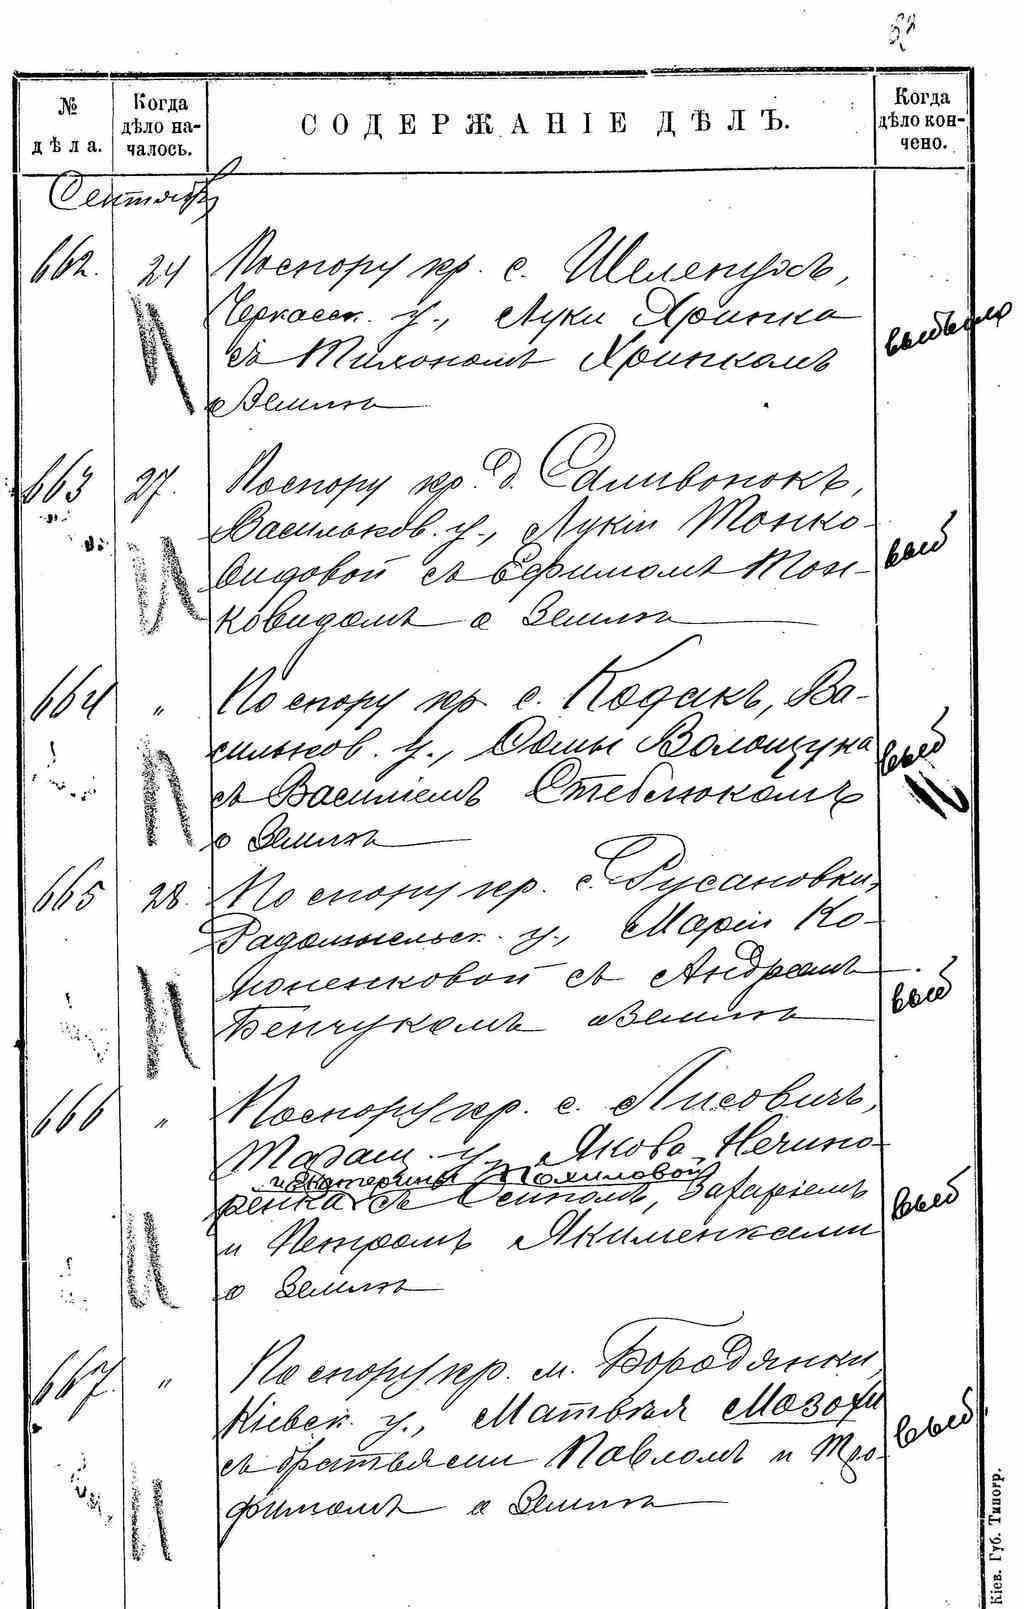 № дѣла.
Когда дѣло на-чалось.
СОДЕРЖАНІЕ ДѢЛЪ.
Когда дѣло кон-чено.
Сентябрь
662. 24 По спору кр. с. Шелепухъ,
Черкасск. у., Луки Хринка
съ Тихономъ Хринкомъ
о Землѣ
выбыло
663 27. По спору кр. д. Саливонокъ,
Васильков. у., Лукіи Тонко-
видовой съ Ефимомъ Тон-
ковидомъ о Землѣ
выб
664 " По спору кр. с. Кодакъ, Ва-
сильков. у., Фомы Волощука
съ Василіемъ Стеблюкомъ
о Землѣ
выб
665 28. По спору кр. с. Русановки,
Радомысльск. у., Маріи Ко-
ноненковой съ Андреемъ
Бенчукомъ о Землѣ
выб
666 " По спору кр. с. Лисовичъ,
Таращ. у., Якова Нечипо-
и Екатерины Похиловой
ренка съ Осипомъ, Захаріемъ
и Петромъ Якименками
о Землѣ
выб
667. " По спору кр. м. Бородянки,
Кіевск. у., Матвѣя Мозохи
съ братьями Павломъ и Тро-
фимомъ о Землѣ
выб
Кіев. Губ. Типогр.